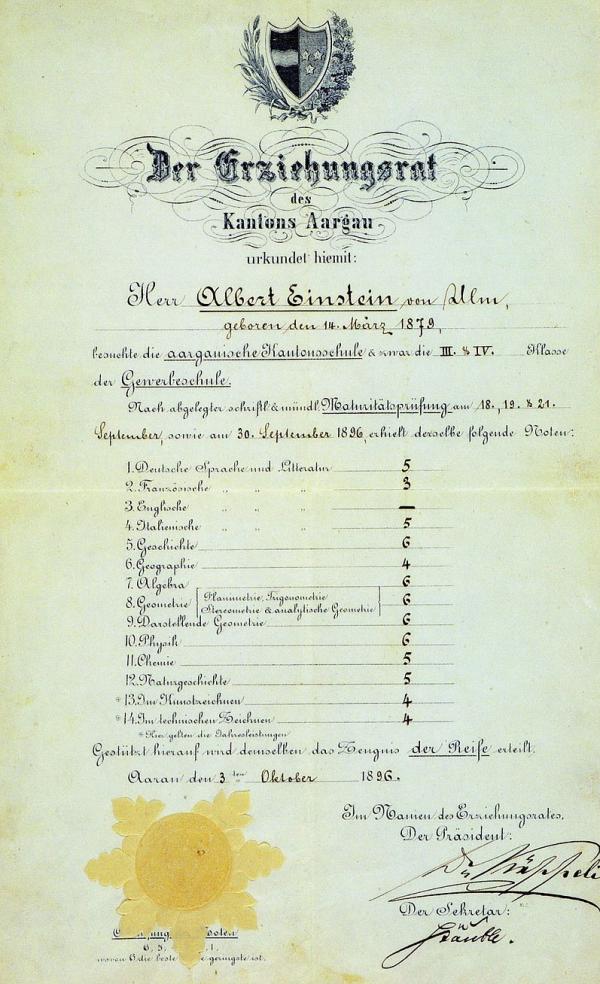 Der Erziehungsrat
des
Kantons Aargau
urkundet hiemit:
Herr Albert Einstein von Ulm,
geboren den 14. März 1879,
besuchte die aargauische Kantonsschule & zwar die III. & IV. Klasse
der Gewerbeschule.
Nach abgelegter schriftl. & mündl. Maturitätsprüfung am 18., 19. & 21.
September, sowie am 30. September 1896, erhielt derselbe folgende Noten:
1. Deutsche Sprache und Litteratur 5
2. Französische „ „ „ 3
3. Englische „ „ „ —
4. Italienische „ „ „ 5
5. Geschichte 6
6. Geographie 4
7. Algebra 6
8. Geometrie Planimetrie, Trigonometrie Stereometrie & analytische Geometrie 6
9. Darstellende Geometrie 6
10. Physik 6
11. Chemie 5
12. Naturgeschichte 5
* 13. Im Kunstzeichnen 4
* 14. Im technischen Zeichnen 4
* Hier gelten die Jahresleistungen
Gestützt hierauf wird demselben das Zeugnis der Reife erteilt.
Aarau den 3ten Oktober 1896.
Im Namen des Erziehungsrates,
Der Präsident:
Der Sekretär:
Stäuble.
6, 5, 1,
wovon 6 die beste geringste ist.